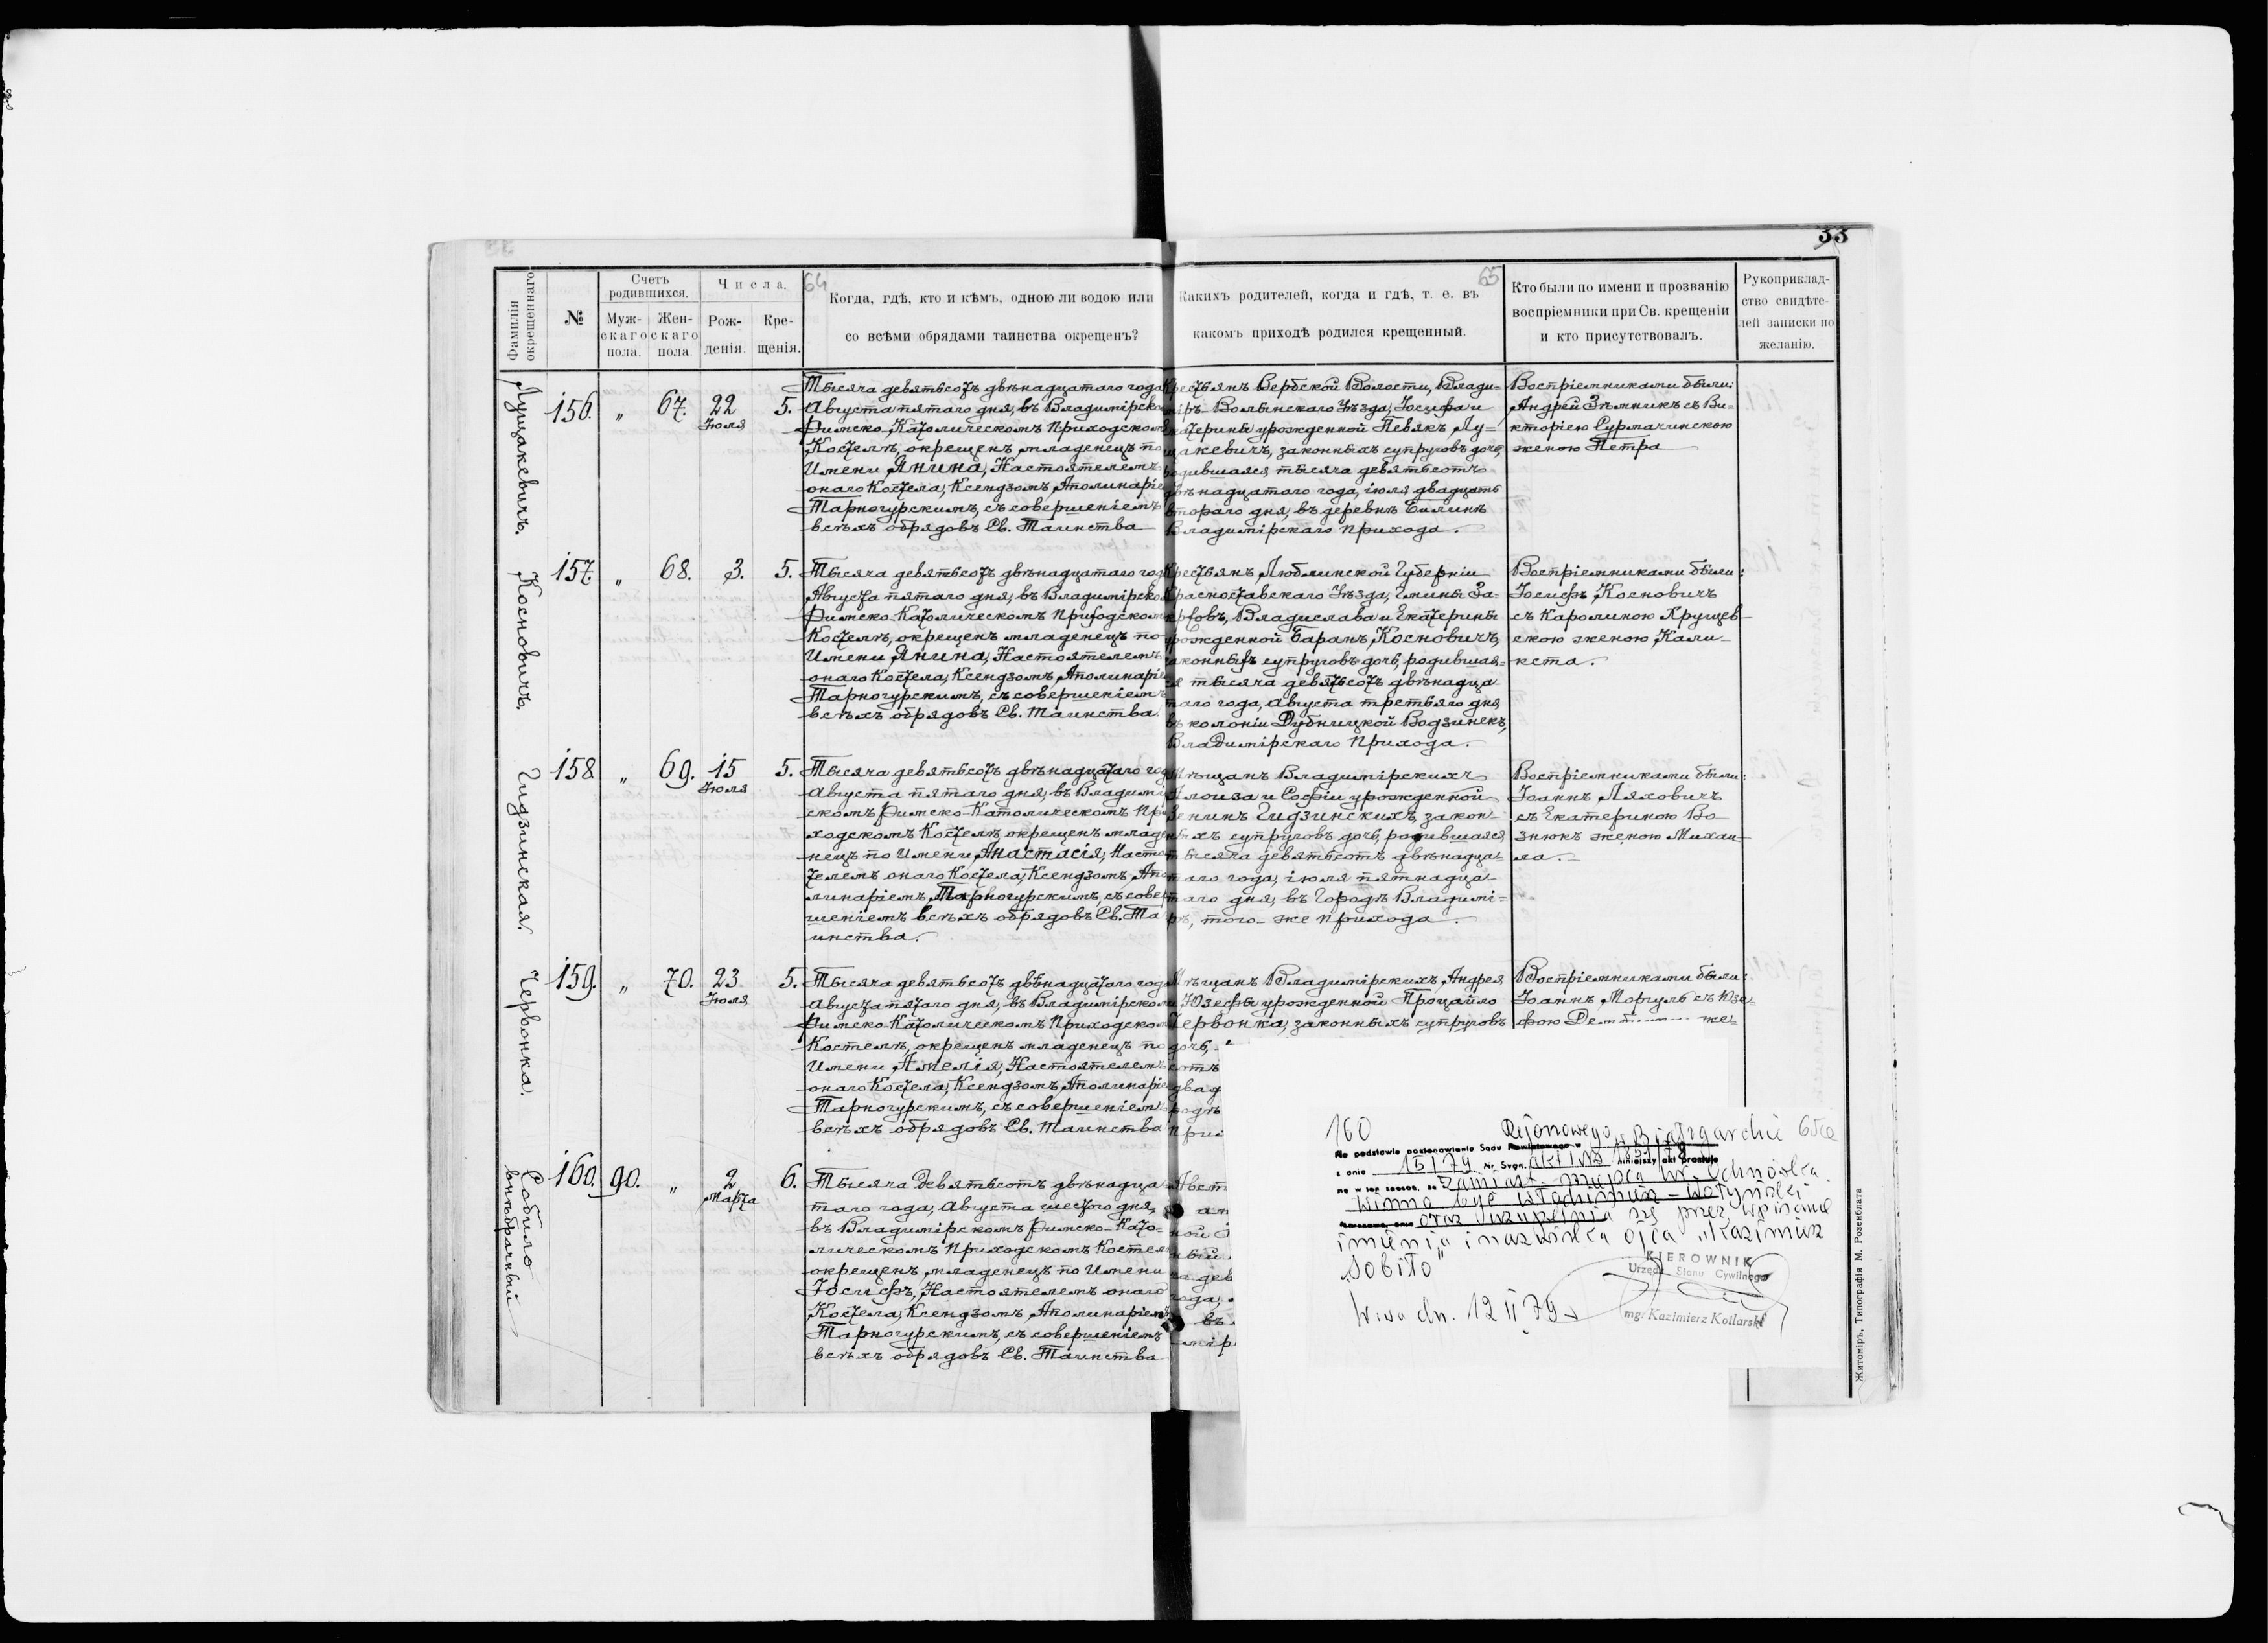 33
64
65
Фамилія окрещеннаго
№
Счетъ родившихся.
Мужскаго пола.
Женскаго пола.
Числа.
Рожденія.
Крещенія.
Когда, гдѣ, кто и кѣмъ, одною ли водою или
со всѣми обрядами таинства окрещенъ?
Какихъ родителей, когда и гдѣ, т. е. въ
какомъ приходѣ родился крещенный.
Кто были по имени и прозванію
воспріемники при Св. крещеніи
и кто присутствовалъ.
Рукоприклад-
ство свидѣте-
лей записки по
желанію.
Луцакевичъ.
156. " 67. 22 Іюля 5.
Тысяча девятьсотъ двѣнадцатаго года
Августа пятаго дня, въ Владимірско
Римско-Католическомъ Приходском
Костелѣ, окрещенъ младенецъ по
Имени Янина, Настоятелемъ
онаго Костела, Ксендзомъ Аполинаріе
Тарногурскимъ, съ совершеніемъ
всѣхъ обрядовъ Св. Таинства
Крестьянъ Вербской Волости, Влади-
міръ-Волынскаго Уѣзда, Іосифа и
катерины урожденной Певякъ, Лу-
цакевичъ, законныхъ супруговъ дочь,
родившаяся тысяча девятьсотъ
двѣнадцатаго года, іюля двадцать
втораго дня, въ деревнѣ Билинѣ
Владимірскаго прихода.
Воспріемниками были:
Андрей Зѣмникъ съ Ви-
кторіею Сурмачинскою
женою Петра
Косновичъ.
157. " 68. 3. 5.
Тысяча девятьсотъ двѣнадцатаго год
Августа пятаго дня, въ Владимірско
Римско-Католическомъ Приходском
Костелѣ, окрещенъ младенецъ по
Имени Янина, Настоятелемъ
онаго Костела, Ксендзомъ Аполинаріе
Тарногурскимъ, съ совершеніемъ
всѣхъ обрядовъ Св. Таинства.
Крестьянъ Люблинской Губерніи
Красноставскаго Уѣзда, Гмины За-
Владислава и Екатерины
урожденной Баранъ, Косновичъ,
законныхъ супруговъ дочь, родившая-
ся тысяча девятьсотъ двѣнадца
таго года, августа третьяго дня
въ колоніи Дубницкой Водзинекъ,
Владимірскаго прихода.
Воспріемниками были:
Іосифъ Косновичъ
съ Каролиною Хрущев-
скою женою Кали-
кста.
Гидзинская.
158 " 69. 15 Іюля 5.
Тысяча девятьсотъ двѣнадцатаго год
Августа пятаго дня, въ Владимі
скомъ Римско-Католическомъ При
ходскомъ Костелѣ, окрещенъ младе
нецъ по Имени Анастасія, Насто
телемъ онаго Костела, Ксендзомъ Апо
линаріемъ Тарногурскимъ, съ совер
шеніемъ всѣхъ обрядовъ Св. Та
инства.
Мѣщанъ Владимірскихъ
Алоиза и Софіи урожденной
Гидзинскихъ, закон-
ныхъ супруговъ дочь, родившаяся
тысяча девятьсотъ двѣнадца-
таго года, іюля пятнадца-
таго дня, въ Городѣ Владимі-
рѣ, того-же прихода.
Воспріемниками были:
Іоаннъ Ляховичъ
съ Екатериною Во-
знюкъ женою Михаи-
ла.
Червонка.
159. " 70. 23 Іюля 5.
Тысяча девятьсотъ двѣнадцатаго года
Августа пятаго дня, въ Владимірском
Римско-Католическомъ Приходском
Костелѣ, окрещенъ младенецъ по
Имени Амелія, Настоятелемъ
онаго Костела, Ксендзомъ Аполинаріе
Тарногурскимъ, съ совершеніемъ
всѣхъ обрядовъ Св. Таинства
Мѣщанъ Владимірскихъ, Андрея
Юзефы урожденной Процайло
Червонка, законныхъ супруговъ
дочь,
Воспріемниками были:
Іоаннъ Моргуль съ Юзе-
фою же-
Собило
внѣбрачный
160. 90. " 2 Марта 6.
Тысяча девятьсотъ двѣнадца
таго года, Августа шестого дня,
въ Владимірскомъ Римско-Като-
лическомъ Приходскомъ Костел
окрещенъ младенецъ по Имени
Іосифъ, Настоятелемъ онаго
Костела, Ксендзомъ Аполинаріемъ
Тарногурскимъ, съ совершеніемъ
всѣхъ обрядовъ Св. Таинства
160
Rejonowego
Na podstawie postanowienia Sądu Powiatowego w
z dnia 15 I 79 Nr Sygn. niniejszy akt prostuje
się w ten sposób, że zamiast
winno być włodzimiersko-wołyński
oraz uzupełnia się przez wpisanie
imienia i nazwiska ojca „Kazimierz
Sobiło”
KIEROWNIK
Urzędu Stanu Cywilnego
mgr Kazimierz Kotlarski
W-wa dn. 12 II 79
Житоміръ, Типографія М. Розенблата